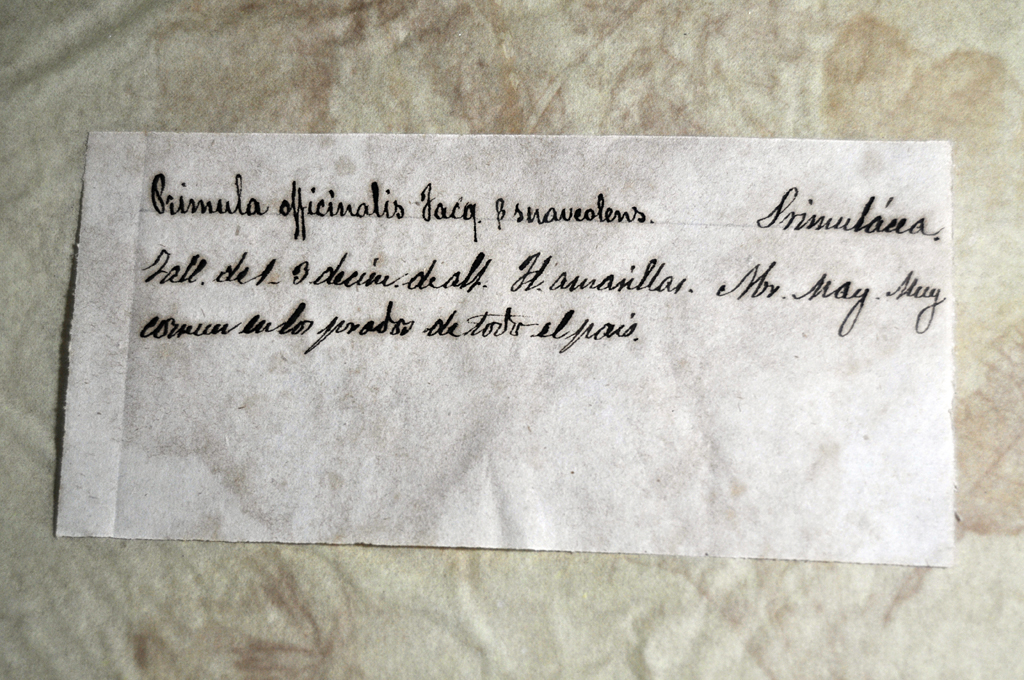 Primula officinalis Jacq. β suaveolens. Primulácea.
Tall. de 1-3 decím. de alt. Fl. amarillas. Abr. May. Muy
comun en los prados de todo el pais.